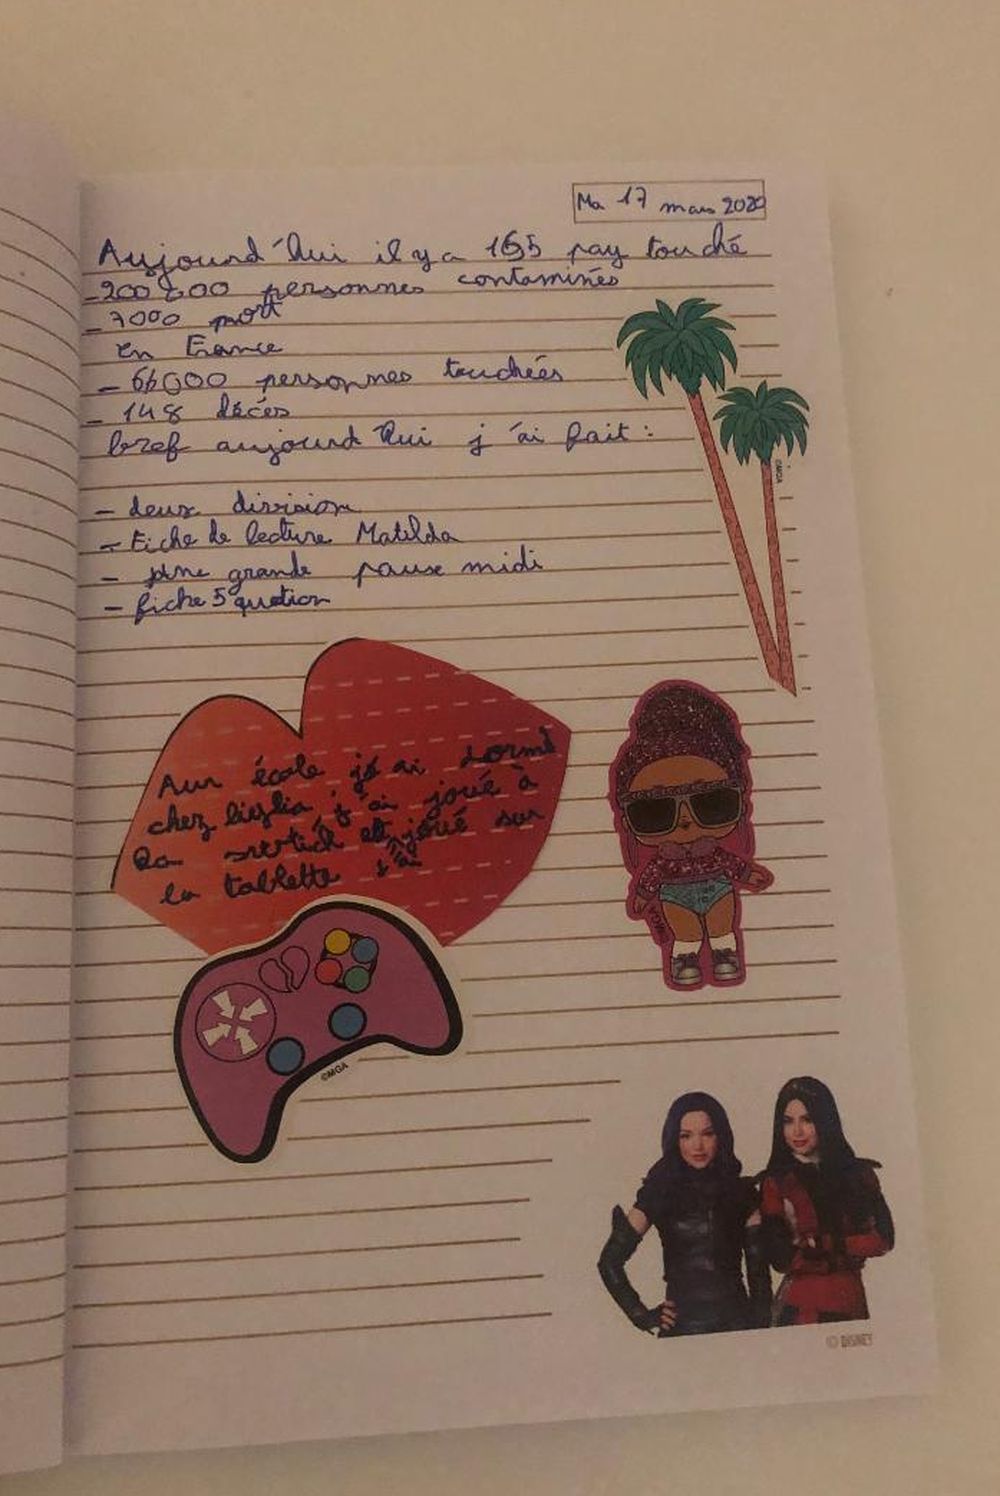 Ma 17 mars 2020
Aujourd'hui il y a 165 pay touché
- 200 000 personnes contaminés
- 7000 mort
en France
- 66000 personnes touchées
- 148 décés
bref aujourd'hui j'ai fait :
- deux division
- Fiche de lecture Matilda
- une grande pause midi
- fiche 5 quetion
©MGA
école j'ai dormi
chez j'ai joué à
la et j'ai joué sur
la tablette
©MGA
© DISNEY